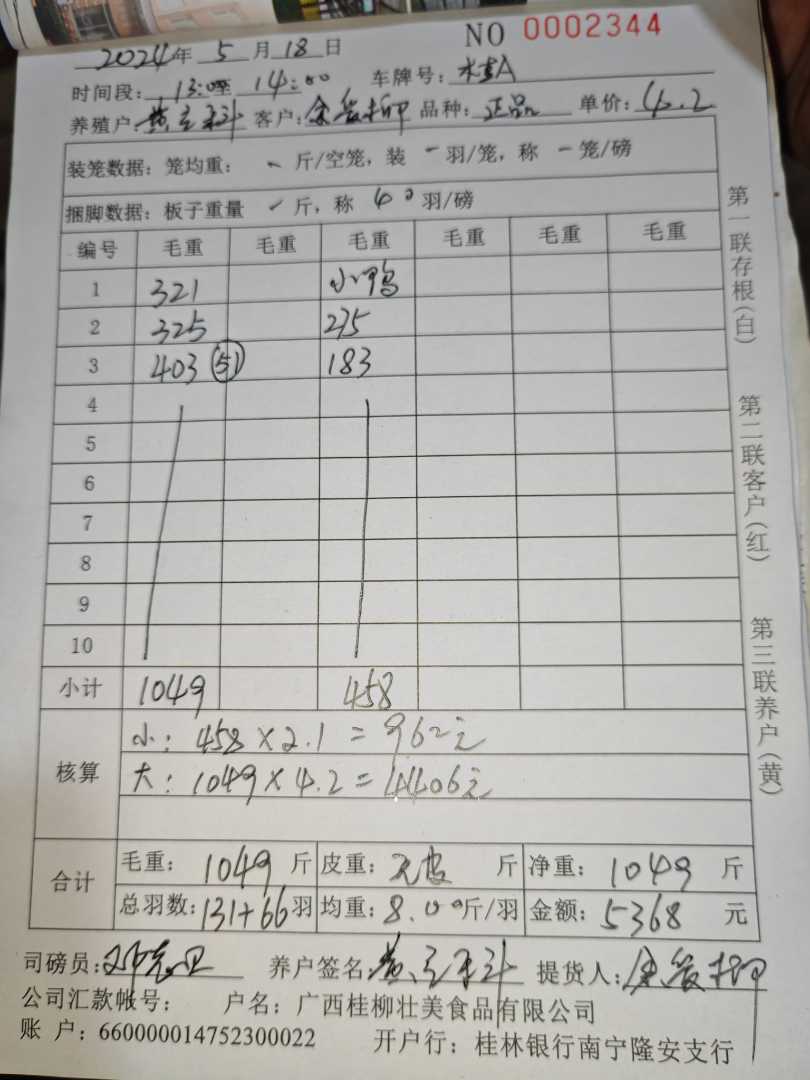 2024年 5 月 18 日 NO 0002344
时间段: 13:00至 14:00 车牌号: 桂A
养殖户: 客户: 品种: 正品 单价: 4.2
装笼数据: 笼均重: - 斤/空笼, 装 - 羽/笼, 称 - 笼/磅
捆脚数据: 板子重量 斤, 称 40 羽/磅
编号 毛重 毛重 毛重 毛重 毛重 毛重
1 321 小鸭
2 325 275
3 403 (51) 183
4
5
6
7
8
9
10
小计 1049 458
核算
小: 458×2.1=962元
大: 1049×4.2=4406元
合计
毛重: 1049 斤 皮重: 无皮 斤 净重: 1049 斤
总羽数: 131+66 羽 均重: 8.00斤/羽 金额: 5368 元
司磅员: 养户签名: 提货人:
公司汇款帐号: 户名: 广西桂柳壮美食品有限公司
账 户: 660000014752300022 开户行: 桂林银行南宁隆安支行
第一联存根(白)
第二联客户(红)
第三联养户(黄)